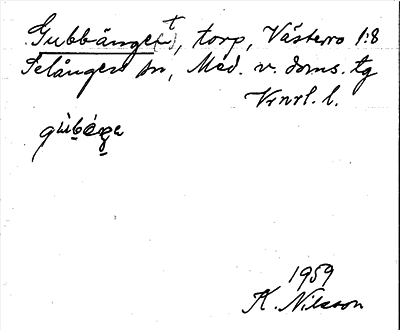 Gubbänget(t), torp, Västerro 1:8
Selånger sn, Med. v. doms. tg
Vrnrl. l.
gùb
1959
K. Nilsson